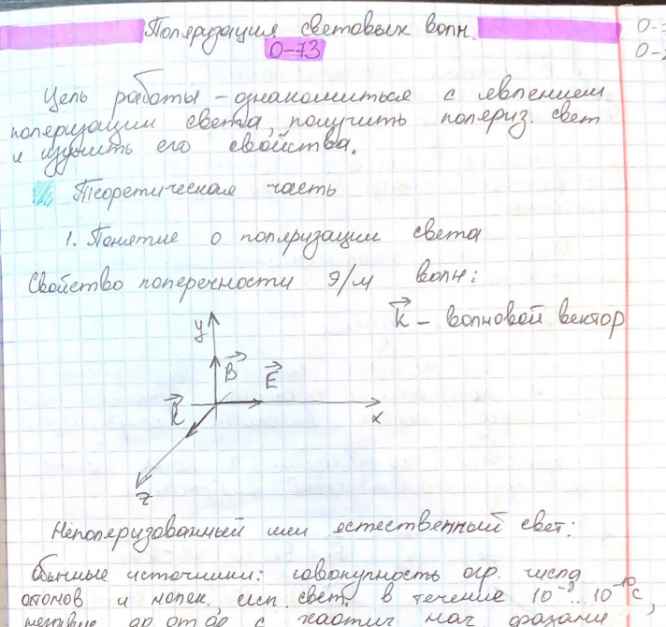 Поляризация световых волн.
О-73
О-
О-2
Цель работы - ознакомиться с явлением
поляризации света, получить поляриз. свет
и изучить его свойства.
Теоретическая часть
1. Понятие о поляризации света
Свойство поперечности э/м волн:
k⃗ - волновой вектор
y
B⃗
E⃗
k⃗
x
z
Неполяризованный или естественный свет:
Обычные источники: совокупность огр. числа
атомов и молек., исп. свет. в течение 10⁻⁸...10⁻¹⁰ с,
с хаотич. нач. фазами